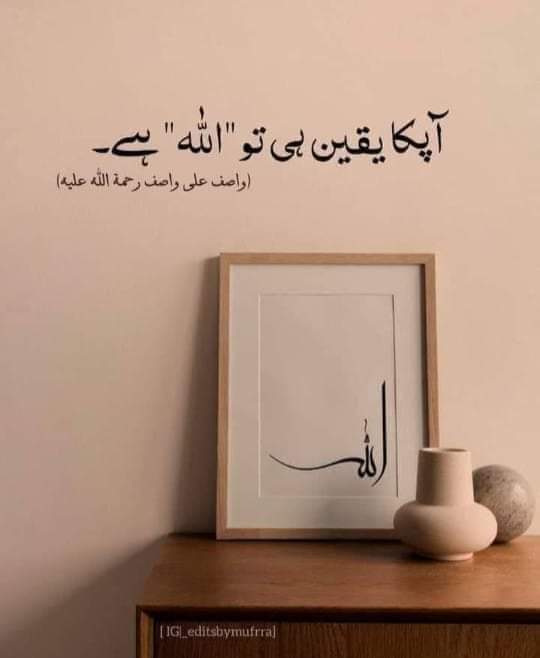 آپکا یقین ہی تو "اللہ" ہے۔
(واصف علی واصف رحمة اللہ علیہ)
اللہ
[ IG|_editsbymufrra]